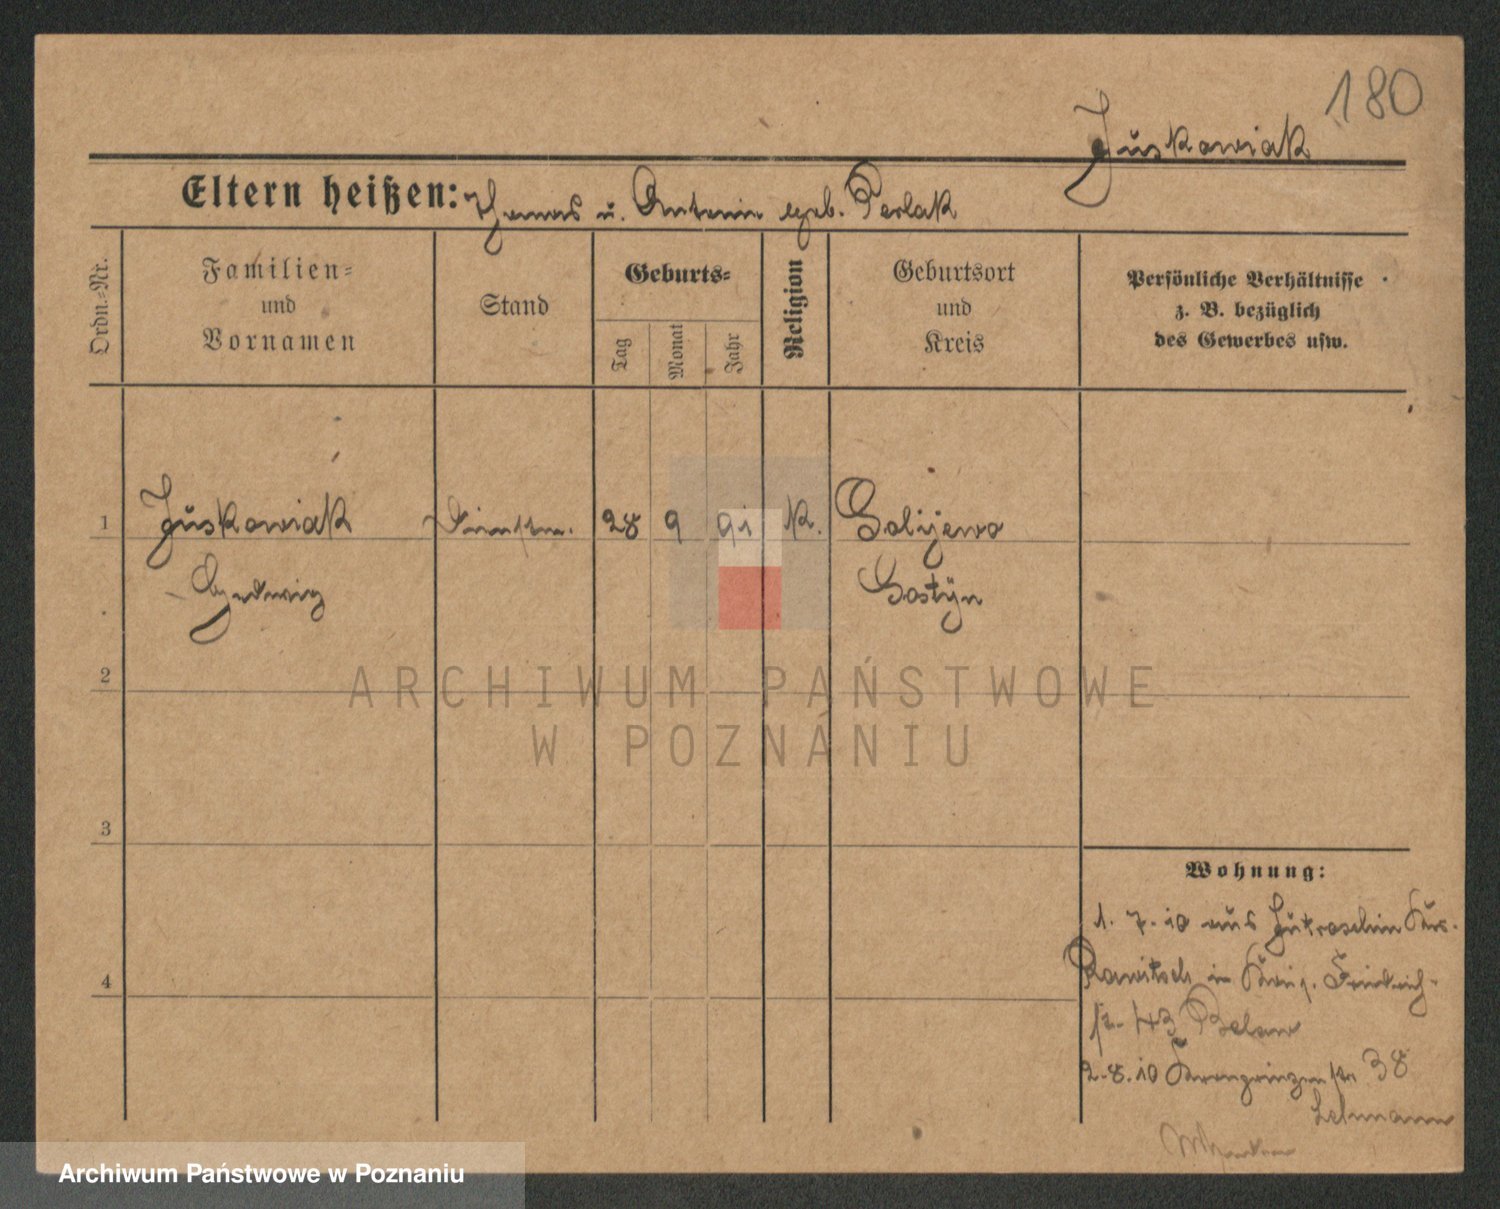 180
Juskowiak
Eltern heißen: Thomas u. Antonie geb. Perlak
Ordn.-Nr.
Familien-
und
Vornamen
Stand
Geburts-
Tag
Monat
Jahr
Religion
Geburtsort
und
Kreis
Persönliche Verhältnisse
z. B. bezüglich
des Gewerbes usw.
1 Juskowiak 28 9 91 K. Golijewo
Hedwig Gostÿn
2
ARCHIWUM PAŃSTWOWE
W POZNANIU
3
Wohnung:
1. 7. 10 aus Jutroschin Krs.
Rawitsch in Friedrich-
4
str. 43
2. 8. 10 Kronprinzenstr 38
Lehmann
Archiwum Państwowe w Poznaniu